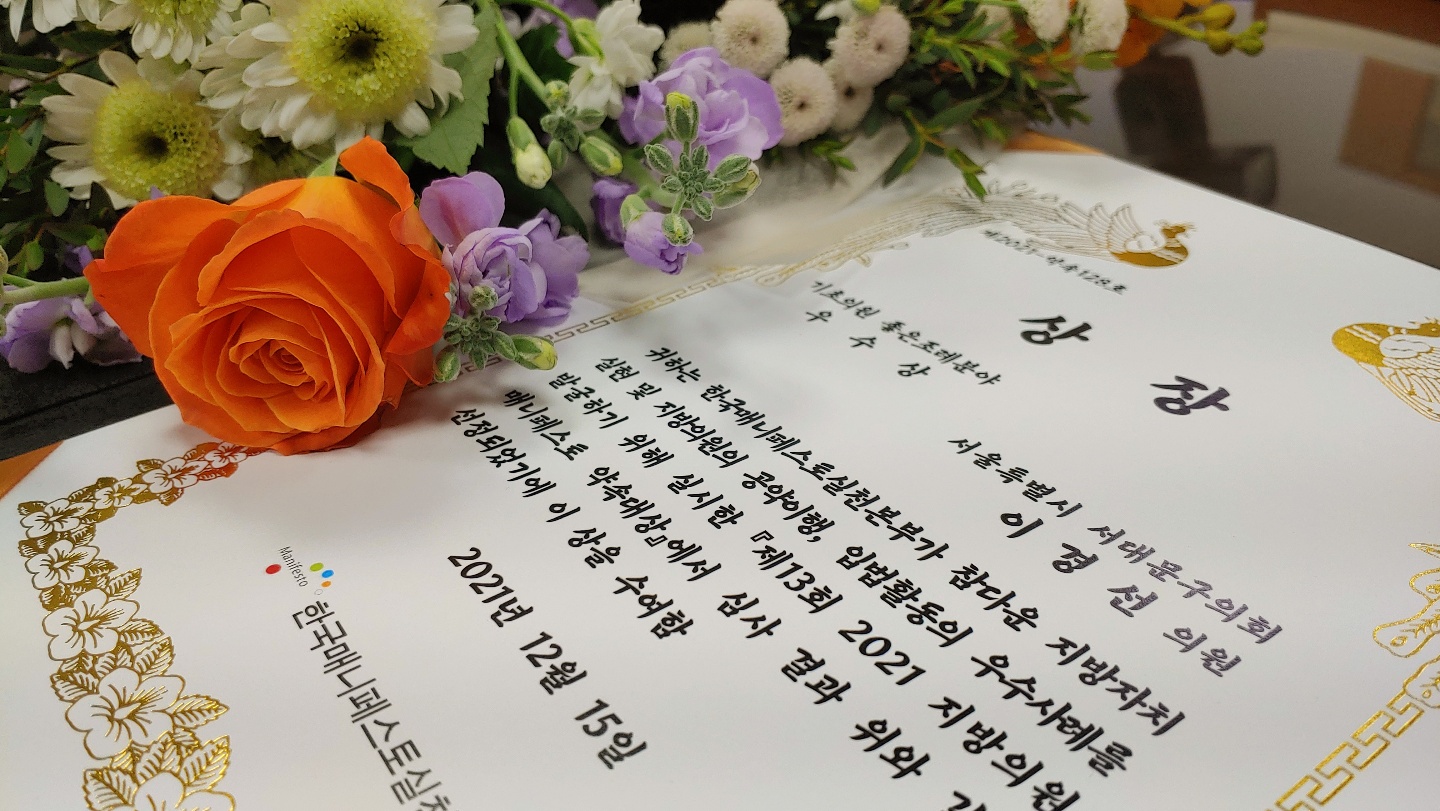 제2021-약속128호
상 장
기초의원 좋은조례분야
우 수 상
서울특별시 서대문구의회
이 경 선 의원
귀하는 한국매니페스토실천본부가 참다운 지방자치
실현 및 지방의원의 공약이행, 입법활동의 우수사례를
발굴하기 위해 실시한 『제13회 2021 지방의원
매니페스토 약속대상』에서 심사 결과 위와
선정되었기에 이 상을 수여함
2021년 12월 15일
Manifesto
한국매니페스토실천